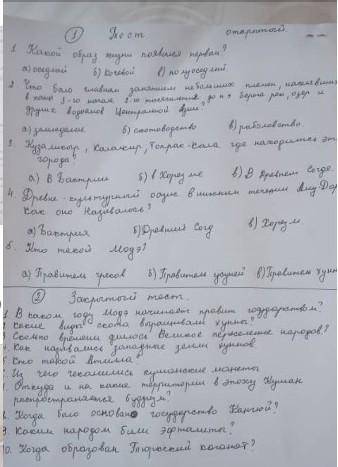 ① Тест открытый.
1. Какой образ жизни появился первым?
а) оседлый б) кочевой в) полуоседлый
2. Что было главным занятием небольших племён, населявших
в конце 3-го начале 2-го тысячелетия до н.э берега рек, озёр и
других водоёмов Центральной Азии?
а) земледелие б) скотоводство в) рыболовство.
3. Кузалигир, Калалигир, Топрак-Кала где находились эти
города?
а) В Бактрии б) в Хорезме в) В Древнем Согде.
4. Древне-культурный оазис в нижнем течении Аму-Дар
Как оно называлось?
а) Бактрия б) Древний Согд в) Хорезм
5. Кто такой Модэ?
а) Правитель греков б) Правитель усуней в) Правитель хунн
② Закрытый тест.
1. В каком году Модэ начинает править государством?
2. Какие виды скота выращивали хунны?
3. Сколько времени длилось Великое переселение народов?
4. Как назывались западные земли хуннов
5. Кто такой Аттила?
Из чего чеканились кушанские монеты
Откуда и на какие территории в эпоху Кушан
распространяется буддизм?
8. Когда было основано государство Кангюй?
9. Каким народом были эфталиты?
10. Когда образован Тюркский каганат?